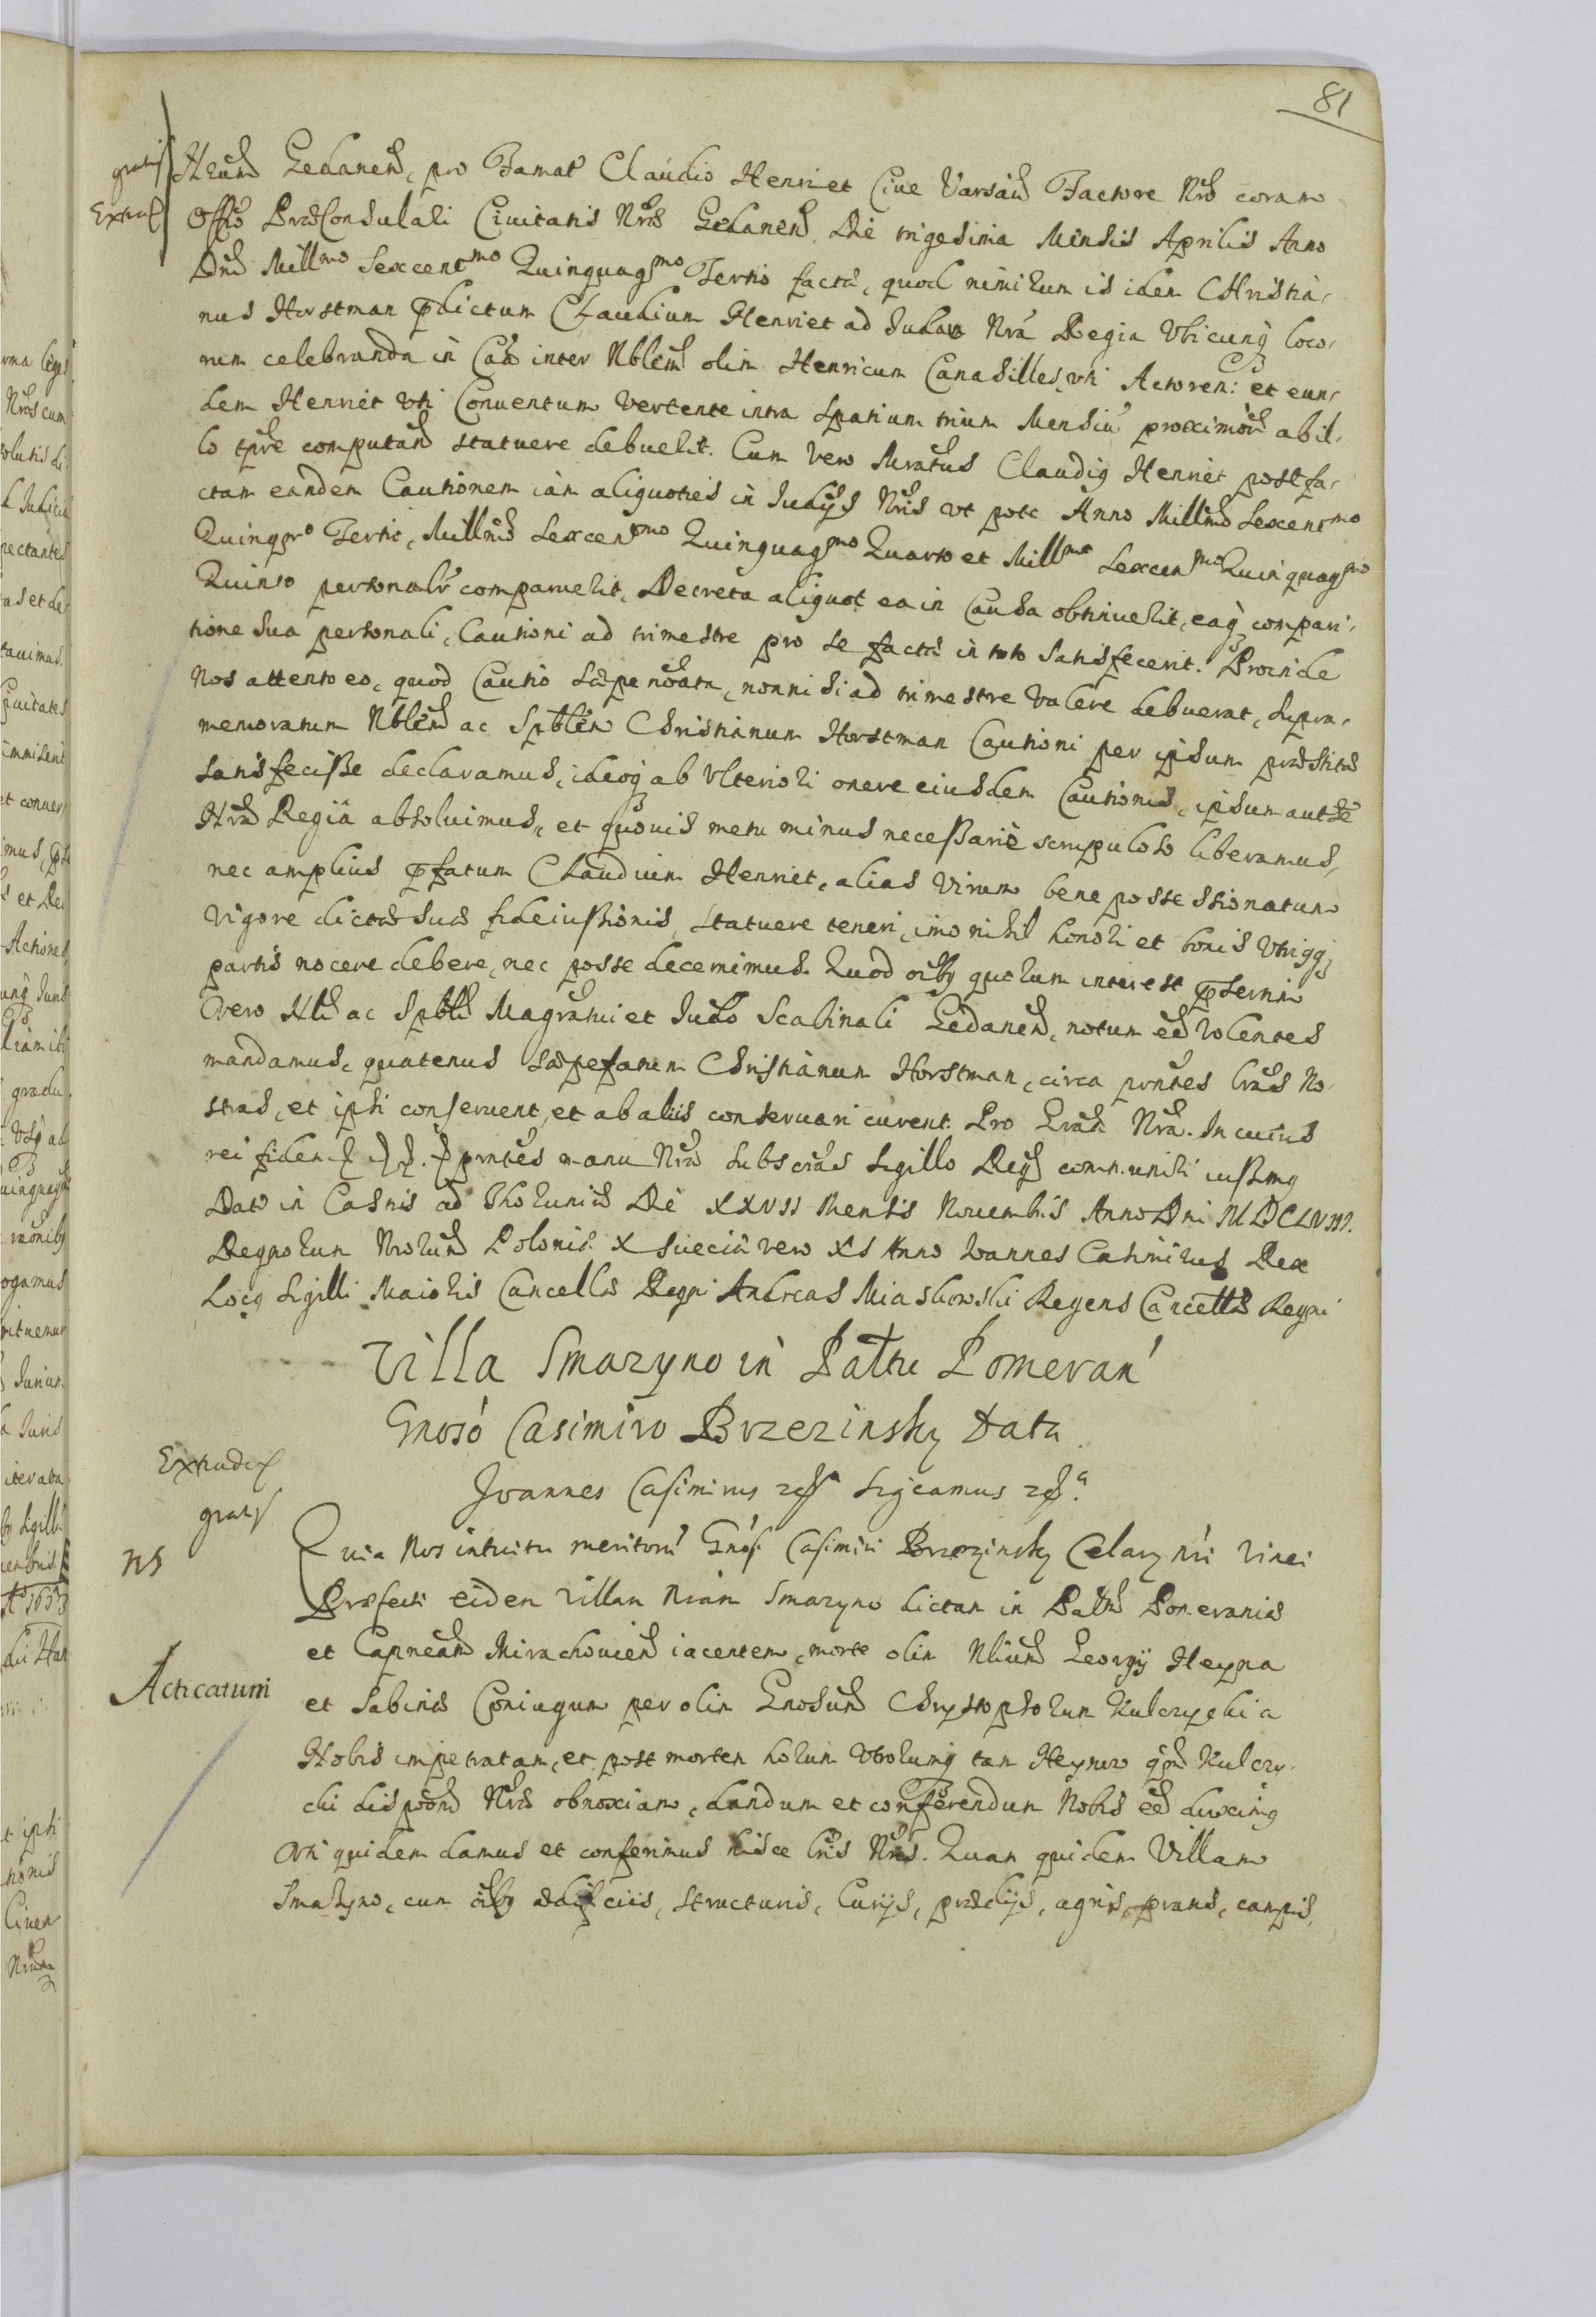 81
gratis
Extrad
Nrum Gedanen, pro Famat Claudio Henriet Ciue Varsauien Factore Nro coram
Offio PraeConsulari Ciuitatis Nrae Gedanen, Die trigesima Mensis Aprilis Anno
Dni Mill^mo Sexcent^mo Quinquag^mo Tertio facta, quod nimirum is idem Christia,
nus Horstman pdictum Claudium Henriet ad Iudicia Nra Regia Vbicunq loco,
rum celebranda in Caa inter Nblem olim Henricum Canasilles, vti Actorem: et eun,
dem Henriet vti Conuentum vertente intra spatium trium Mensiu proximor ab il,
lo tpre computan statuere debuerit. Cum vero Mratus Claudiq Henriet post fa,
ctam eandem Cautionem iam aliquoties in Iudijs Nris vt pote Anno Millmo Sexcent^mo
Quinqmo Tertio, Millmo Sexcent^mo Quinquag^mo Quarto et Mill^mo Sexcen^mo Quinquag^mo
Quinto personalr comparuerit, Decreta aliquot ea in Causa obtinuerit, eaq compari,
tione sua personali, Cautioni ad trimestre pro se facta in toto satisfecerit. Proinde
Nos attento eo, quod Cautio saepe noata, non nisi ad trimestre valere debuerat, supra,
memoratum Nblem ac Spblem Christianum Horstman Cautioni per ipsum praestitae
satisfecisse declaramus, ideoq ab vlteriori onere eiusdem Cautionis, ipsum autte
Nra Regia absoluimus, et quouis metu minus necessarie scrupuloso liberamus,
nec amplius pfatum Claudium Henriet, alias virum bene possessionatum
vigore dictae suae fideiussionis, statuere teneri, imo nihil honori et bonis vtriqq
partis nocere debere, nec posse decernimus. Quod oibq quorum interest psertim
vero Nbli ac Spbli Magratui et Iudo Scabinali Gedanen, notum ee volentes
mandamus, quatenus saepefatum Christianum Horstman, circa prntes lras No,
stras, et ipsi conseruent, et ab aliis conseruari curent. Pro Gratia Nra. In cuius
rei fidem prntes manu Nra subscras sigillo Regni communiri iussimq
Dat in Castris ad Thoruniu Die XXVII Mensis Nouembris Anno Dni MDCLVIII.
Regnorum Nrorum Poloniae X Sueciae vero XI Anno Ioannes Casimirus Rex
Locq Sigilli Maioris Cancellae Regni Andreas Miaskowski Regens Cancellae Regni
Villa Smazyno in Pattu Pomeran
Gnoso Casimiro Brzezinsky Data
Extradit
gratis
Joannes Casimirus Significamus
NS
Quia Nos intuitu meritor Gnosi Casimiri Brzezinsky Cellarij Nri Vinei
Praefecti eidem Villam Nram Smazyno dictam in Pattu Pomeraniae
et Capneatu Mirachouien iacentem, morte olim Nbilium Georgij Heyna
Acticatum
et Sabinae Coniugum per olim Gnosum Chrystophorum Kulczycki a
Nobis impetratam, et post mortem horum vtrorumq tam Heynow qm Kulczy,
cki dispooni Nrae obnoxiam, dandum et conferendum Nobis ee duximq
vti quidem damus et conferimus hisce lris Nris. Quam quidem Villam
Smazyno, cum oibq aedificiis, structuris, Curijs, praedijs, agris, pratis, campis,